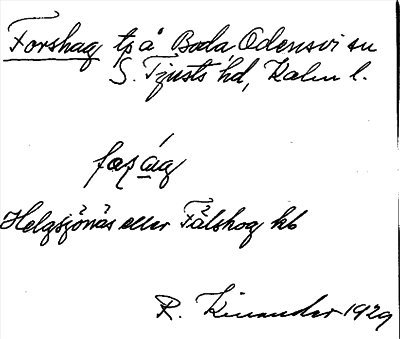 Forshag tp å Boda, Odensvi sn
S. Tjusts hd, Kalm l.
Helgsjönäs eller Fälshog kb
R. Kinander 1929